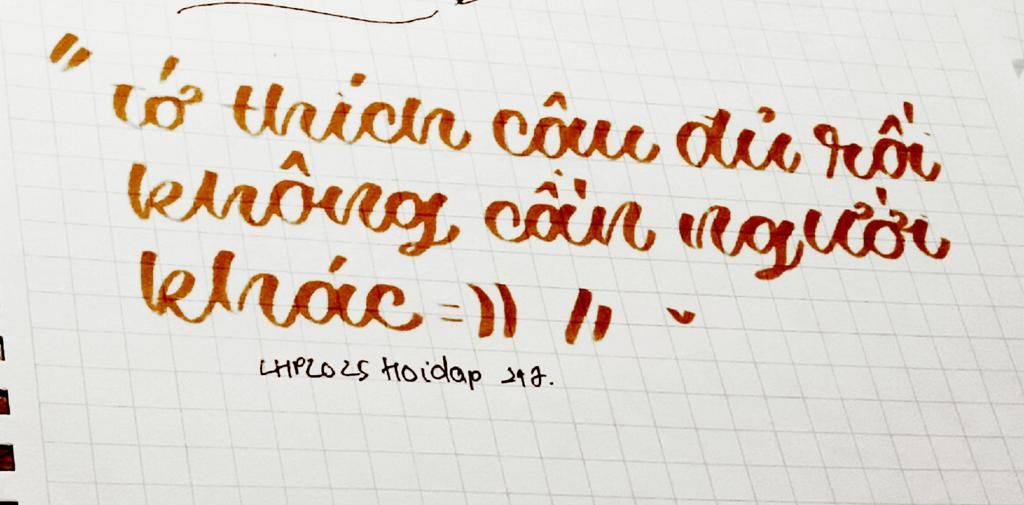 " tớ thích cậu đủ rồi
không cần người
khác =)) "
LHP2025 Hoidap 247.